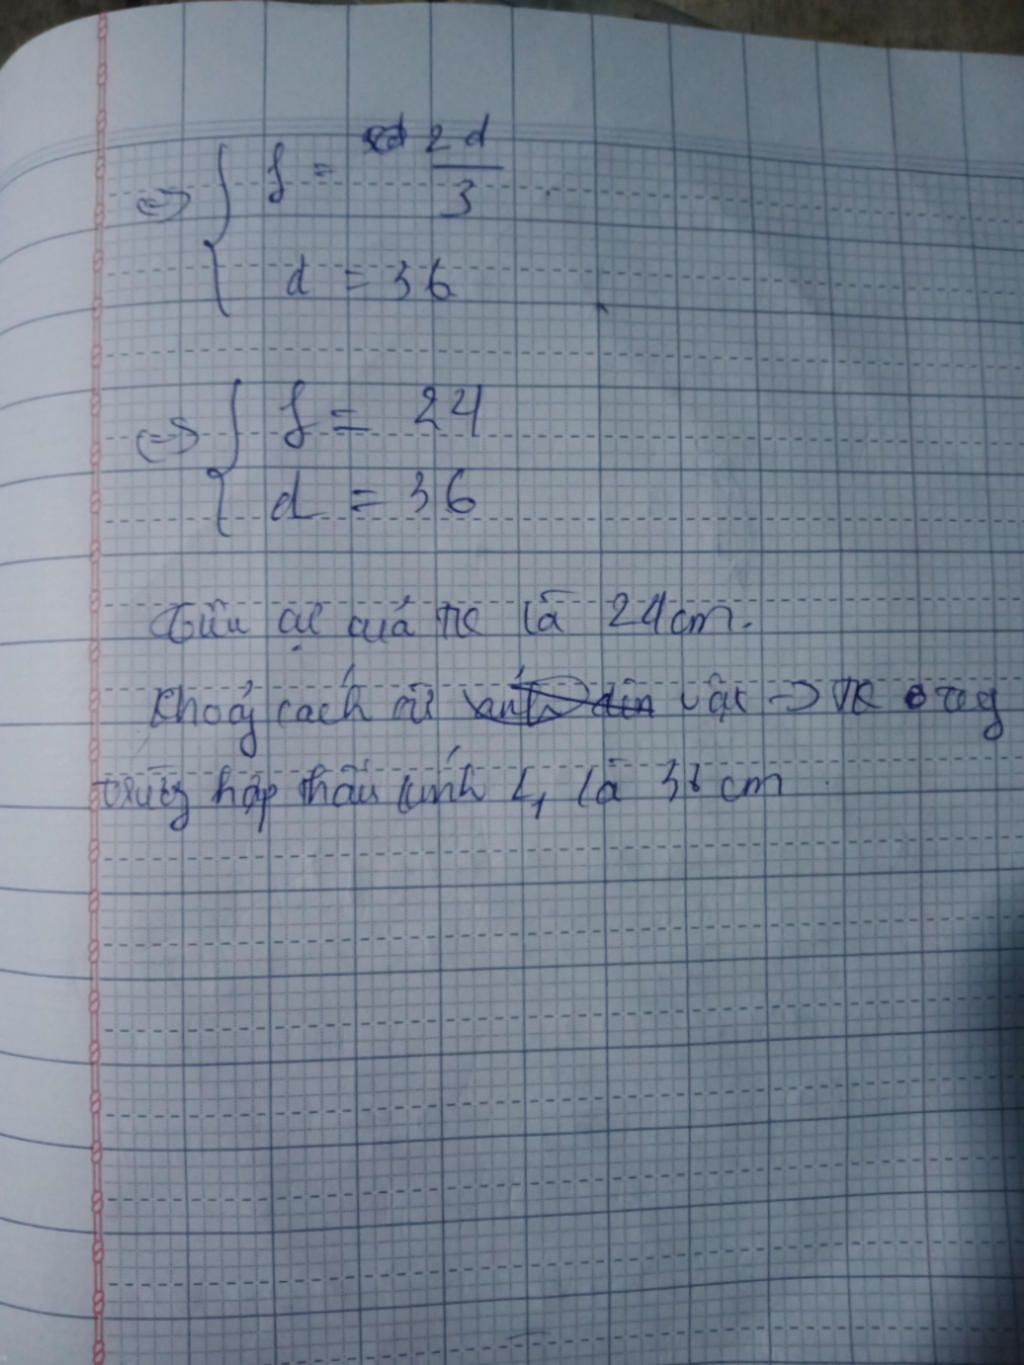 ⇔ { f = 2d/3
d = 36
⇔ { f = 24
d = 36
Tiêu cự của TK là 24cm.
Khoảng cách từ vật → TK trong
trường hợp thấu kính L₁ là 36 cm.